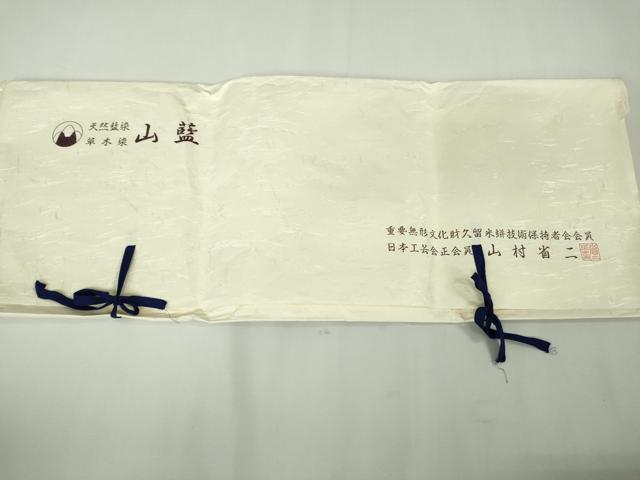 天然藍染
草木染 山藍
重要無形文化財久留米絣技術保持者会会員
日本工芸会正会員 山村省二